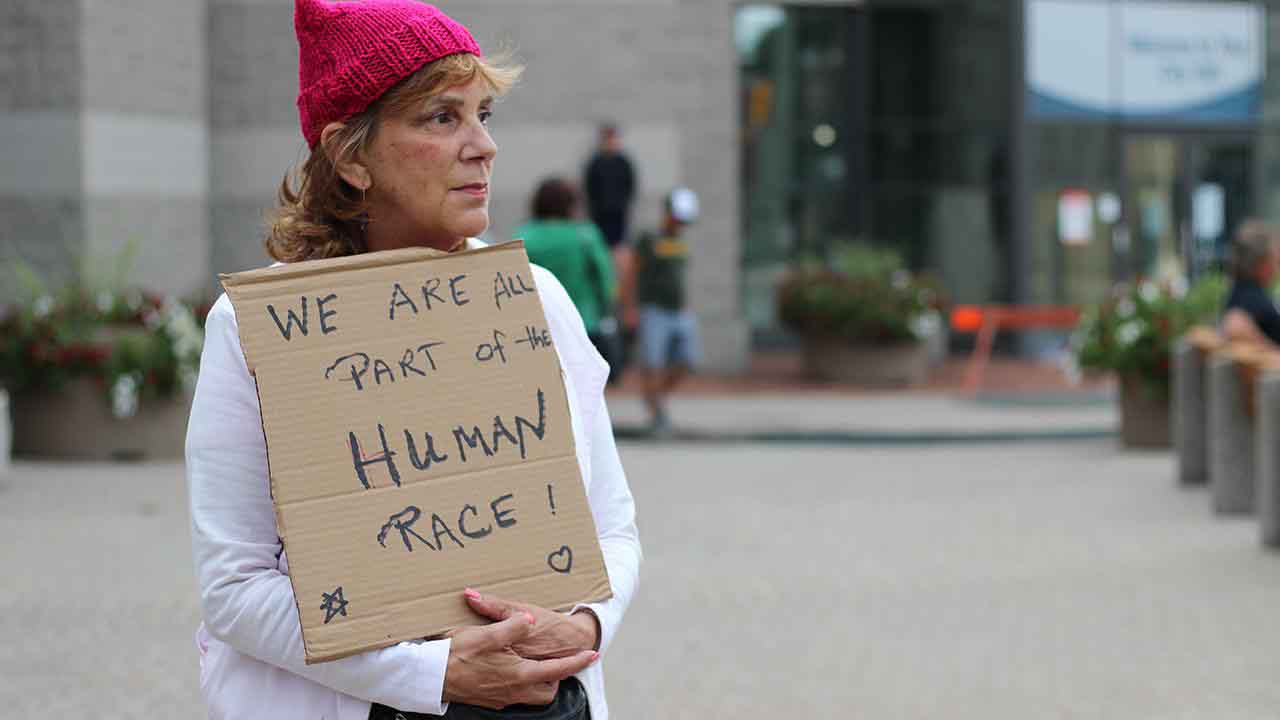 WE ARE ALL
PART OF THE
HUMAN
RACE!